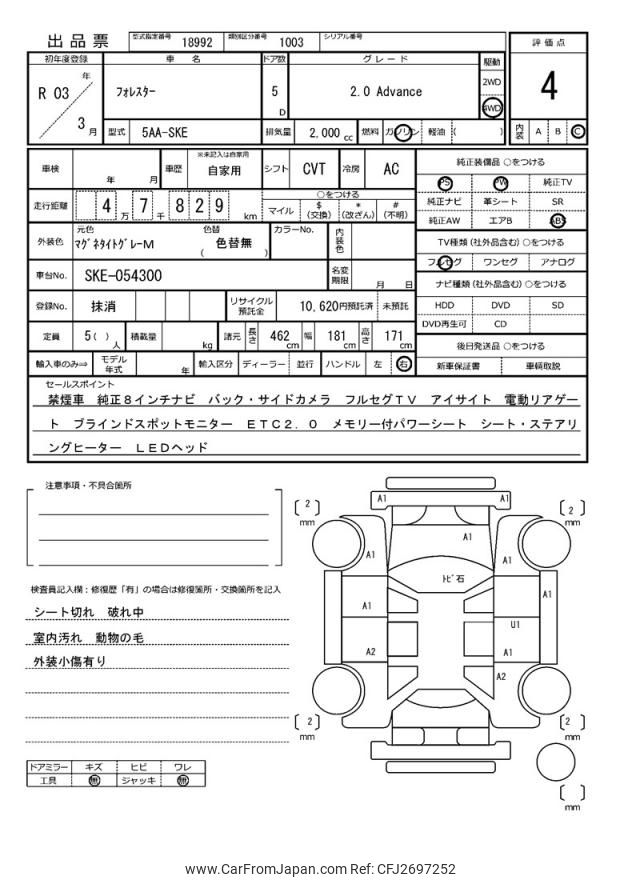 出品票 型式指定番号 18992 類別区分番号 1003 シリアル番号
評価点
4
内装 A B C
初年度登録 車名 ドア数 グレード 駆動
R 03 年 3 月
フォレスター 5 D 2.0 Advance 2WD 4WD
型式 5AA-SKE 排気量 2,000 cc 燃料 ガソリン 軽油 ( )
車検 年 月 車歴 ※未記入は自家用 自家用 シフト CVT 冷房 AC
走行距離 4 万 7 千 8 2 9 km
○をつける
マイル $ (交換) * (改ざん) # (不明)
外装色 元色 マグネタイトグレーM 色替 ( 色替無 ) カラーNo. 内装色
車台No. SKE-054300 名変期限 月 日
登録No. 抹消 リサイクル預託金 10,620円預託済 未預託
定員 5( ) 人 積載量 kg 諸元 長さ 462 cm 幅 181 cm 高さ 171 cm
輸入車のみ⇒ モデル年式 年 輸入区分 ディーラー 並行 ハンドル 左 右
純正装備品 ○をつける
PS PW 純正TV
純正ナビ 革シート SR
純正AW エアB ABS
TV種類(社外品含む)○をつける
フルセグ ワンセグ アナログ
ナビ種類(社外品含む)○をつける
HDD DVD SD
DVD再生可 CD
後日発送品 ○をつける
新車保証書 車輌取説
セールスポイント
禁煙車 純正8インチナビ バック・サイドカメラ フルセグTV アイサイト 電動リアゲー
ト ブラインドスポットモニター ETC2.0 メモリー付パワーシート シート・ステアリ
ングヒーター LEDヘッド
注意事項・不具合箇所
検査員記入欄:修復歴「有」の場合は修復箇所・交換箇所を記入
シート切れ 破れ中
室内汚れ 動物の毛
外装小傷有り
ドアミラー キズ ヒビ ワレ
工具 無 ジャッキ 無
[ 2 ] mm A1 A1 [ 2 ] mm
A1
A1 A1
トビ石
A1 A1
U1
A2 A1
A2
[ 2 ] mm [ 2 ] mm
[ ] mm
www.CarFromJapan.com Ref: CFJ2697252